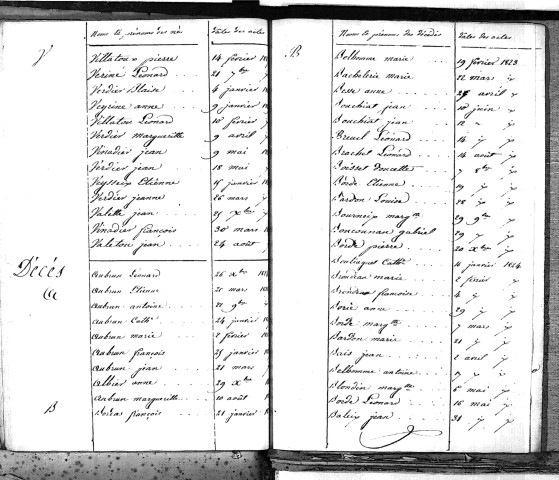 Noms et prénoms des nés Dates des actes
V Villatou pierre 14 février
Verine Léonard 21 7bre
Verdier Blaise 4 janvier
Veyrine anne 9 janvier
Villatou Léonard 10 février
Verdier marguerite 9 avril
Vinadier jean 9 mai
Verdier jean 18 mai
Veysseix Etienne 15 janvier
Verdier jeanne 26 mars
Valette jean 25 Xbre
Vinadier françois 30 mars
Valeton jean 24 août
Décés
A Aubrun Léonard 26 Xbre
Aubrun Etienne 21 mars
Aubrun antoine 21 9bre
Aubrun Cathe 24 janvier
Aubrun marie 2 février
Aubrun françois 25 janvier
Aubrun jean 21 mars
Albier anne 29 Xbre
Aubrun marguerite 10 août
B françois 21 janvier
Noms et prénoms des Décédés Dates des actes
B Delhomme marie 19 février 1823
Bachelerie marie 22 mars
Besse anne 27 avril
Bouchiat jean 10 juin
Bouchiat jean 12 "
Breuil Léonard 14
Brachet Léonard 14 août
Boisset 7 8bre
Borde Etienne 19
Bardon Louise 28
Bourneix margte 29 9bre
gabriel 29
Borde pierre 20 Xbre
Cathe 11 janvier 1824
marie 2 février
françoise 4
Borie anne 29
Borde margte 7 mars
Bardon marie 21
Bais jean 2 avril
Delhomme antoine
Blondin margte 6 mai
Borde Léonard 16 mai
Baleix jean 31